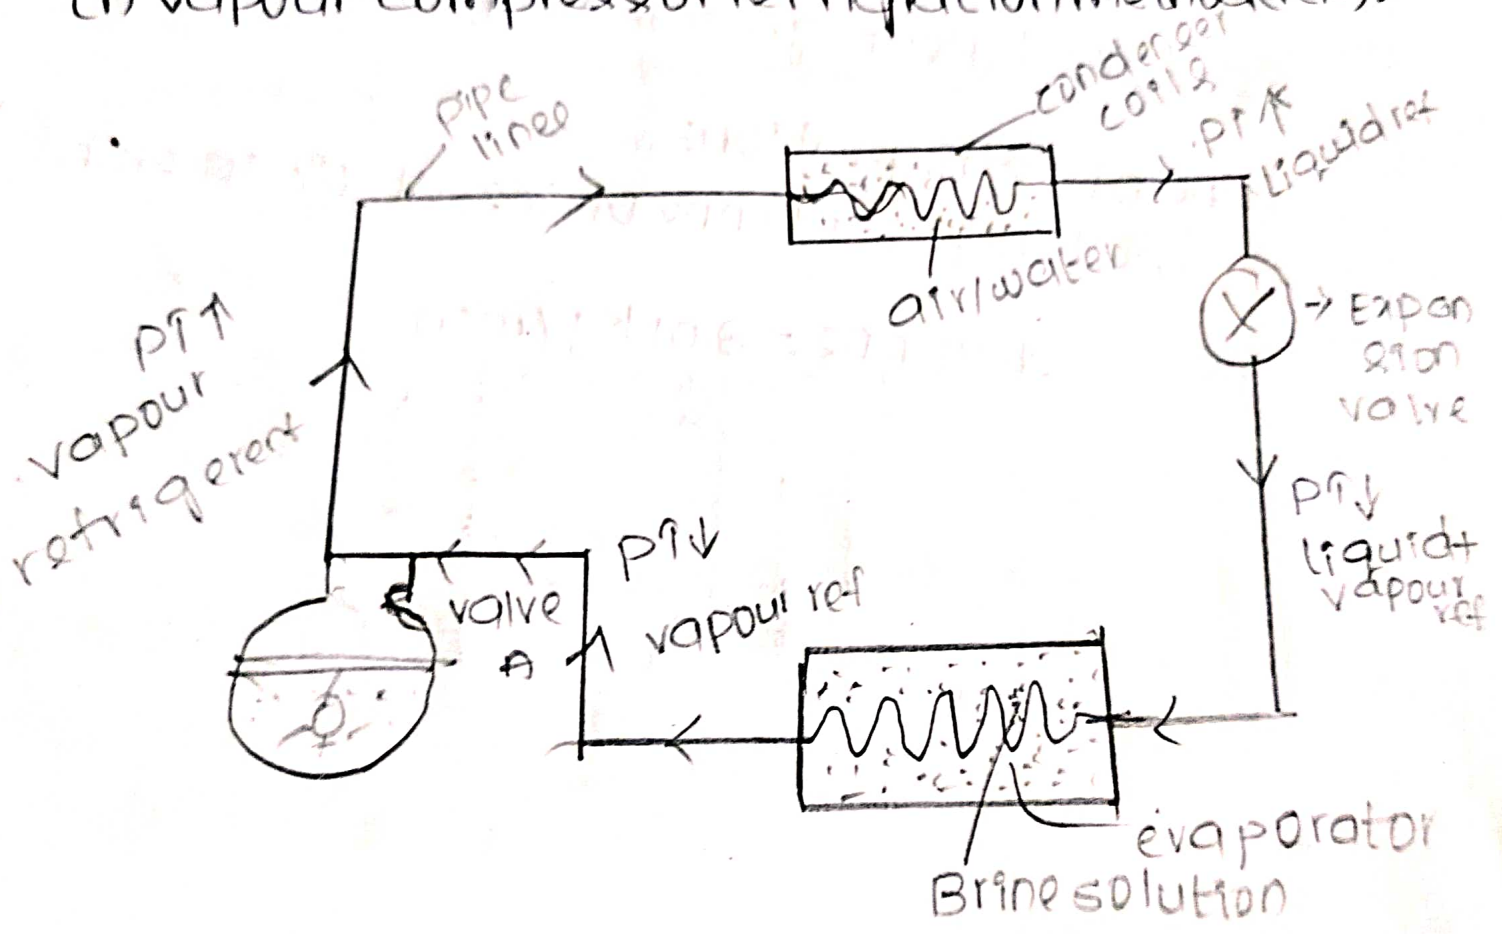 pipe
lines
condenser
coils
PT↑
liquid ref
air/water
→ Expan
sion
valve
PT↑
vapour
refrigerent
PT↓
liquid+
vapour
ref
PT↓
vapour ref
valve
A
evaporator
Brine solution